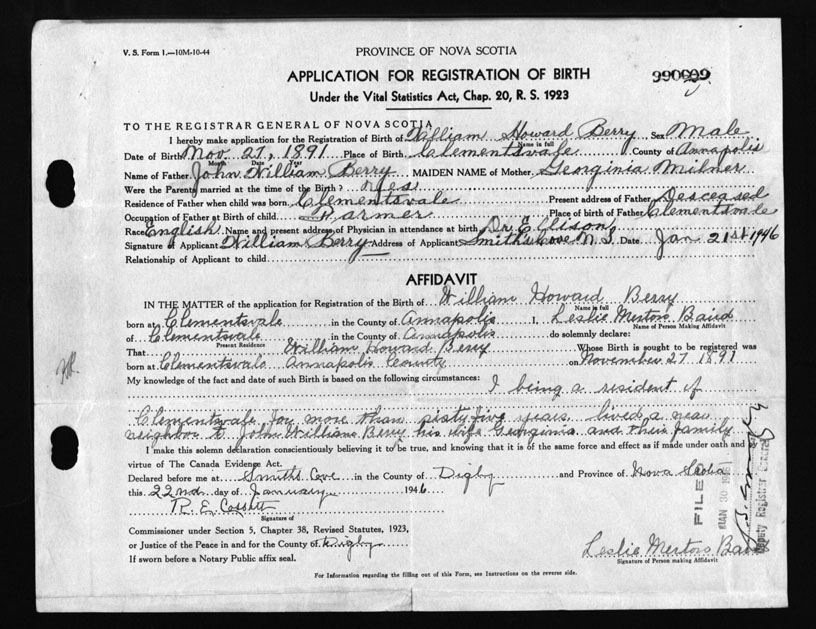 V. S. Form 1.—10M-10-44
PROVINCE OF NOVA SCOTIA
APPLICATION FOR REGISTRATION OF BIRTH
Under the Vital Statistics Act, Chap. 20, R. S. 1923
TO THE REGISTRAR GENERAL OF NOVA SCOTIA
I hereby make application for the Registration of Birth of William Howard Berry Sex Male
Name in full
Date of Birth Nov. 27, 1891 Place of Birth Clementsvale County of Annapolis
Month Date Year
Name of Father John William Berry MAIDEN NAME of Mother Georginia Milner
Were the Parents married at the time of the Birth? Yes
Residence of Father when child was born Clementsvale Present address of Father Desceased
Occupation of Father at Birth of child Farmer Place of birth of Father Clementsvale
Race English Name and present address of Physician in attendance at birth Dr. Ellison
Signature of Applicant William Berry Address of Applicant Smith's Cove N.S. Date Jan 21st 1946
Relationship of Applicant to child
AFFIDAVIT
IN THE MATTER of the application for Registration of the Birth of William Howard Berry
Name in full
born at Clementsvale in the County of Annapolis I, Leslie Merton Baird
Name of Person Making Affidavit
of Clementsvale in the County of Annapolis do solemnly declare:
Present Residence
That William Howard Berry Whose Birth is sought to be registered was
born at Clementsvale Annapolis County on November 27 1891
My knowledge of the fact and date of such Birth is based on the following circumstances: I being a resident of
Clementsvale for more than sixty five years lived a near
neighbor to John William Berry his wife Georginia and their family
I make this solemn declaration conscientiously believing it to be true, and knowing that it is of the same force and effect as if made under oath and by
virtue of The Canada Evidence Act.
Declared before me at Smiths Cove in the County of Digby and Province of Nova Scotia
this 22nd day of January 1946
R. E. Cossitt
Signature of
Commissioner under Section 5, Chapter 38, Revised Statutes, 1923,
or Justice of the Peace in and for the County of Digby
If sworn before a Notary Public affix seal.
Leslie Merton Baird
Signature of Person making Affidavit
FILED
JAN 30
Deputy Registrar General
For Information regarding the filling out of this Form, see Instructions on the reverse side.